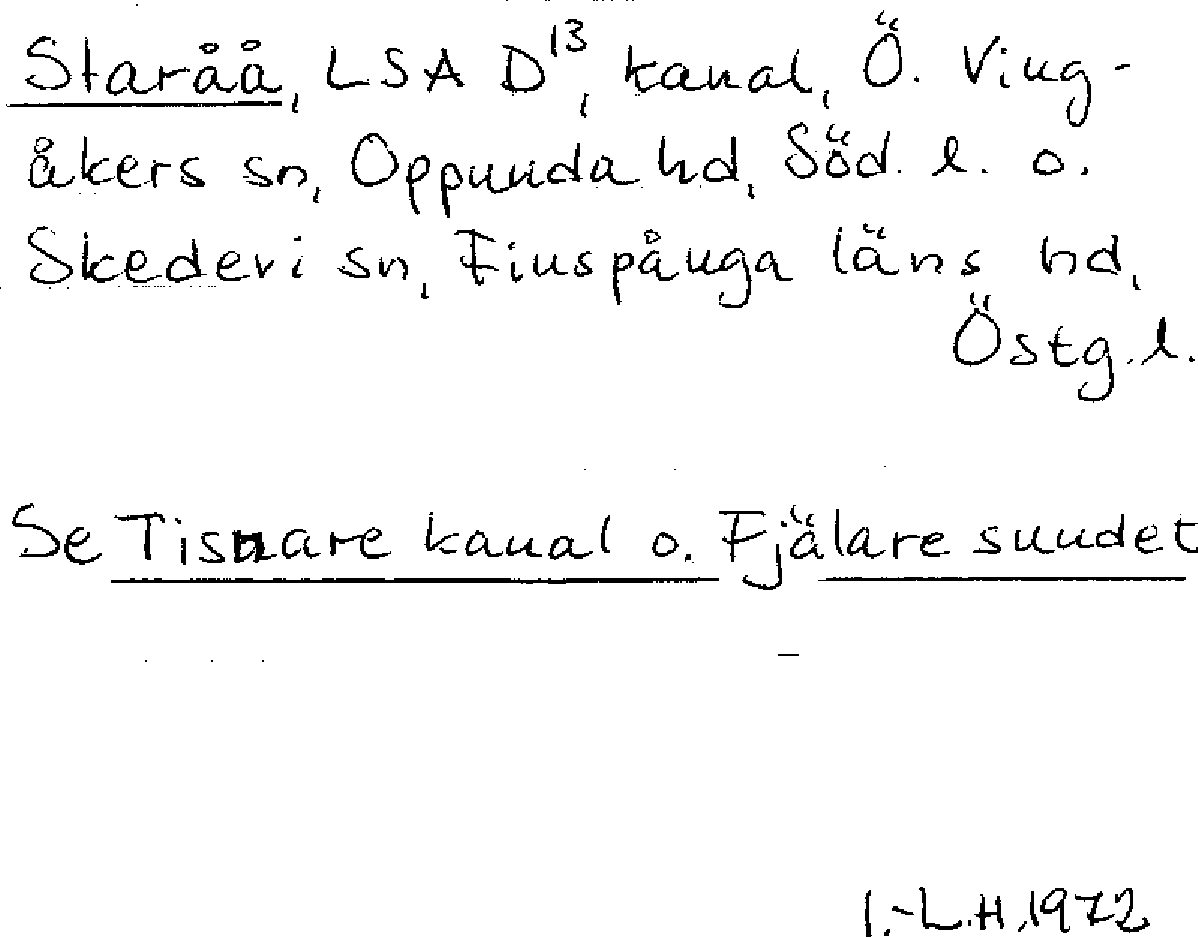 Staråå, LSA D13, kanal, Ö. Ving-
åkers sn, Oppunda hd, Söd. l. o.
Skedevi sn, Finspånga läns hd,
Östg. l.
Se Tisnare kanal o. Fjälare sundet
I.-L.H, 1972